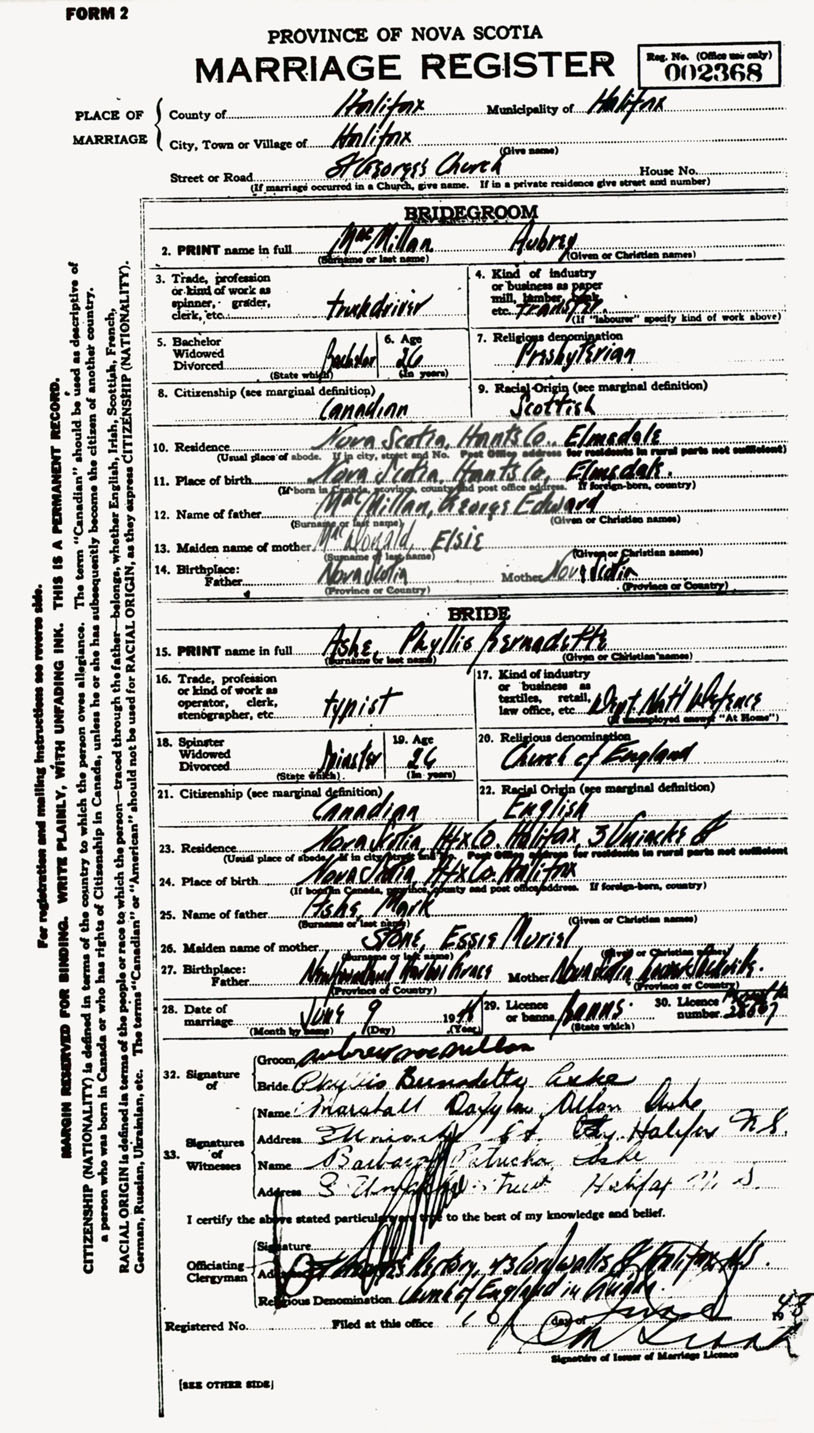 FORM 2
PROVINCE OF NOVA SCOTIA
MARRIAGE REGISTER
Reg. No. (Office use only)
002368
PLACE OF MARRIAGE
County of Halifax Municipality of Halifax
City, Town or Village of Halifax
(Give name)
Street or Road St George's Church House No.
(If marriage occurred in a Church, give name. If in a private residence give street and number)
BRIDEGROOM
2. PRINT name in full MacMillan Aubrey
(Surname or last name) (Given or Christian names)
3. Trade, profession or kind of work as spinner, grader, clerk, etc. truckdriver
4. Kind of industry or business as paper mill, lumber, bank, etc. transfer
(If "labourer" specify kind of work above)
5. Bachelor Widowed Divorced Bachelor
(State which)
6. Age 26
(In years)
7. Religious denomination
Presbyterian
8. Citizenship (see marginal definition)
Canadian
9. Racial Origin (see marginal definition)
Scottish
10. Residence Nova Scotia, Hants Co., Elmsdale
(Usual place of abode. If in city, street and No. Post Office address for residents in rural parts not sufficient)
11. Place of birth Nova Scotia, Hants Co, Elmsdale.
(If born in Canada, province, county and post office address. If foreign-born, country)
12. Name of father MacMillan, George Edward
(Surname or last name) (Given or Christian names)
13. Maiden name of mother MacDonald, Elsie
(Surname or last name) (Given or Christian names)
14. Birthplace: Father Nova Scotia Mother Nova Scotia
(Province or Country) (Province or Country)
BRIDE
15. PRINT name in full Ashe, Phyllis Bernadette
(Surname or last name) (Given or Christian names)
16. Trade, profession or kind of work as operator, clerk, stenographer, etc. typist
17. Kind of industry or business as textiles, retail, law office, etc. Dept. Nat'l Defence
(If unemployed answer "At Home")
18. Spinster Widowed Divorced Spinster
(State which)
19. Age 26
(In years)
20. Religious denomination
Church of England
21. Citizenship (see marginal definition)
Canadian
22. Racial Origin (see marginal definition)
English
23. Residence Nova Scotia, Hfx Co. Halifax 3 Uniacke St
(Usual place of abode. If in city, street and No. Post Office address for residents in rural parts not sufficient
24. Place of birth Nova Scotia Hfx Co. Halifax
(If born in Canada, province, county and post office address. If foreign-born, country)
25. Name of father Ashe, Mark
(Surname or last name) (Given or Christian names)
26. Maiden name of mother Stone, Essie Muriel
(Surname or last name) (Given or Christian names)
27. Birthplace: Father Newfoundland Harbor Grace Mother Nova Scotia
(Province or Country) (Province or Country)
28. Date of marriage June 9 19
(Month by name) (Day) (Year)
29. Licence or banns Banns.
(State which)
30. Licence number
32. Signature of
Groom Aubrey MacMillan
Bride Phyllis Bernadette Ashe
33. Signatures of Witnesses
Name Marshall Allan Ashe
Address 3 Uniacke St. Halifax N.S.
Name Barbara Patricia Ashe
Address 3 Uniacke Street Halifax N.S.
I certify the above stated particulars are true to the best of my knowledge and belief.
Officiating Clergyman
Signature
Address St George's Rectory, Cornwallis St Halifax N.S.
Religious Denomination Church of England in Canada.
Registered No. Filed at this office 10 day of June 1948
Signature of Issuer of Marriage Licence
[SEE OTHER SIDE]
For registration and mailing instructions see reverse side.
MARGIN RESERVED FOR BINDING. WRITE PLAINLY, WITH UNFADING INK. THIS IS A PERMANENT RECORD.
CITIZENSHIP (NATIONALITY) is defined in terms of the country to which the person owes allegiance. The term "Canadian" should be used as descriptive of
a person who was born in Canada or who has rights of Citizenship in Canada, unless he or she has subsequently become the citizen of another country.
RACIAL ORIGIN is defined in terms of the people or race to which the person—traced through the father—belongs, whether English, Irish, Scottish, French,
German, Russian, Ukrainian, etc. The terms "Canadian" or "American" should not be used for RACIAL ORIGIN, as they express CITIZENSHIP (NATIONALITY).